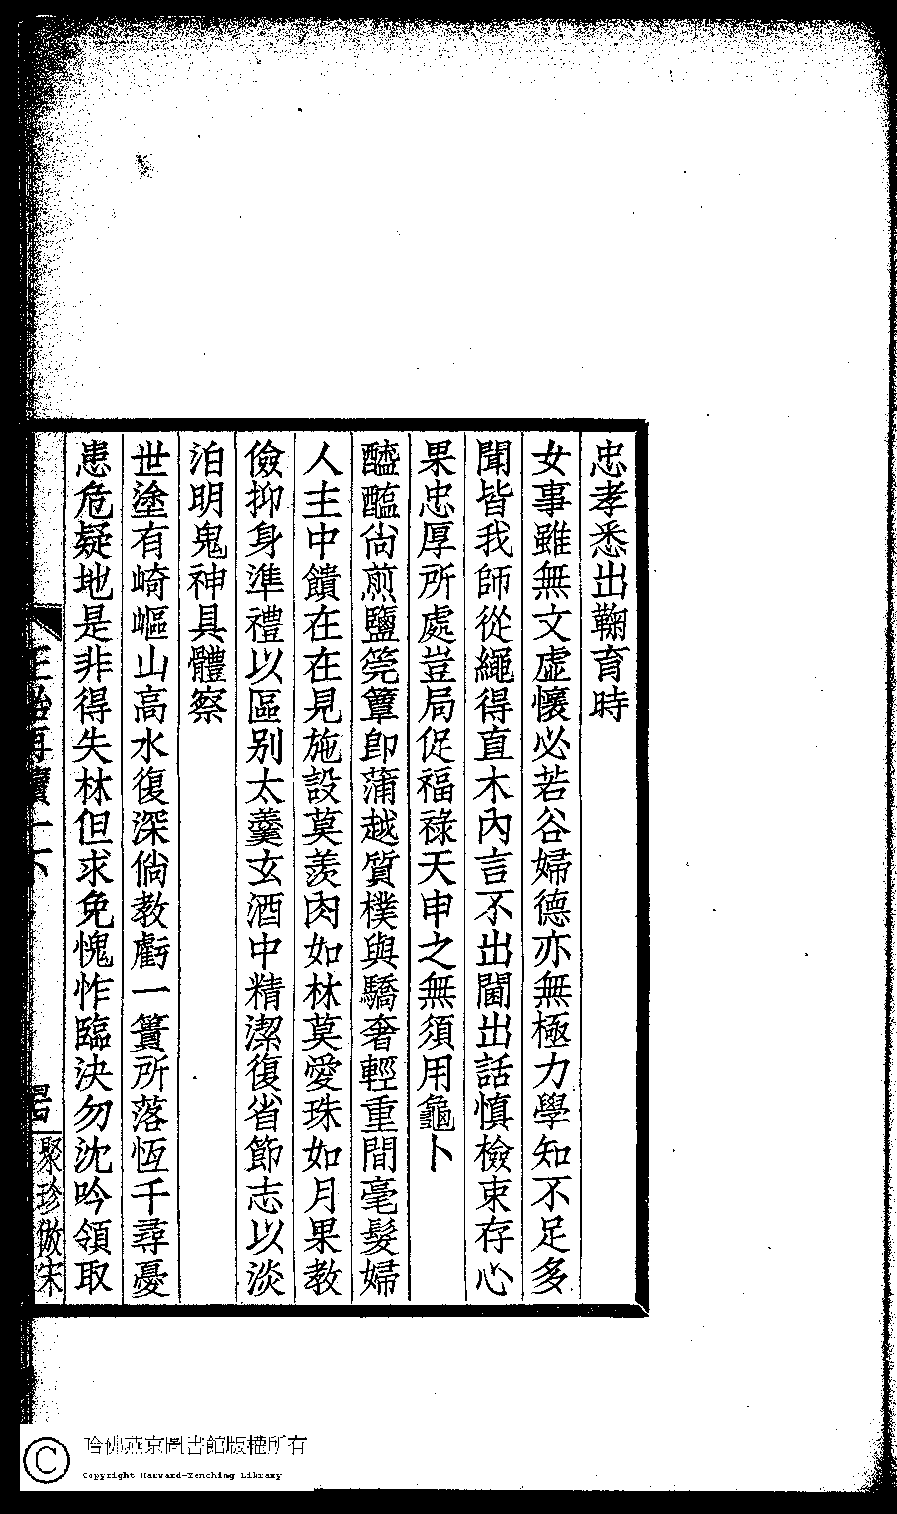 忠孝悉出鞠育時
女事雖無文虛懷必若谷婦德亦無極力學知不足多
聞皆我師從繩得直木內言不出閫出話慎檢束存心
果忠厚所處豈局促福祿天申之無須用龜卜
醯醢尚煎鹽筦簟卽蒲越質樸與驕奢輕重間毫髮婦
人主中饋在在見施設莫羨肉如林莫愛珠如月果教
儉抑身準禮以區別太羹玄酒中精潔復省節志以淡
泊明鬼神具體察
世塗有崎嶇山高水復深倘教虧一簣所落恆千尋憂
患危疑地是非得失林但求免愧怍臨決勿沈吟領取
聚珍倣宋
哈佛燕京圖書館版權所有
Copyright Harvard-Yenching Library